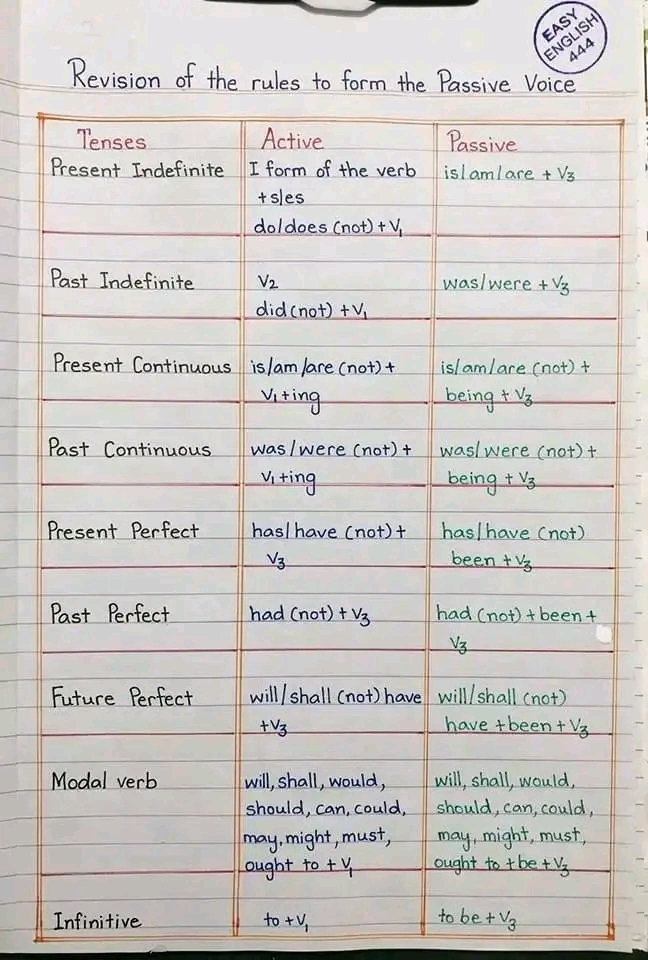 EASY
ENGLISH
444
Revision of the rules to form the Passive Voice
Tenses Active Passive
Present Indefinite I form of the verb is/am/are + V3
+s/es
do/does (not) + V1
Past Indefinite V2 was/were + V3
did (not) + V1
Present Continuous is/am/are (not) + is/am/are (not) +
V1 + ing being + V3
Past Continuous was/were (not) + was/were (not) +
V1 + ing being + V3
Present Perfect has/have (not) + has/have (not)
V3 been + V3
Past Perfect had (not) + V3 had (not) + been +
V3
Future Perfect will/shall (not) have will/shall (not)
+V3 have + been + V3
Modal verb will, shall, would, will, shall, would,
should, can, could, should, can, could,
may, might, must, may, might, must,
ought to + V1 ought to + be + V3
Infinitive to + V1 to be + V3